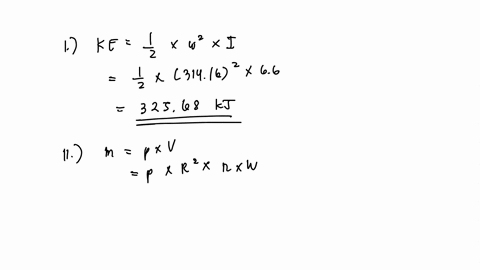 I.) KE = 1/2 × ω² × I
= 1/2 × (314.16)² × 6.6
= 325.68 KJ
II.) m = ρ × V
= ρ × R² × π × W